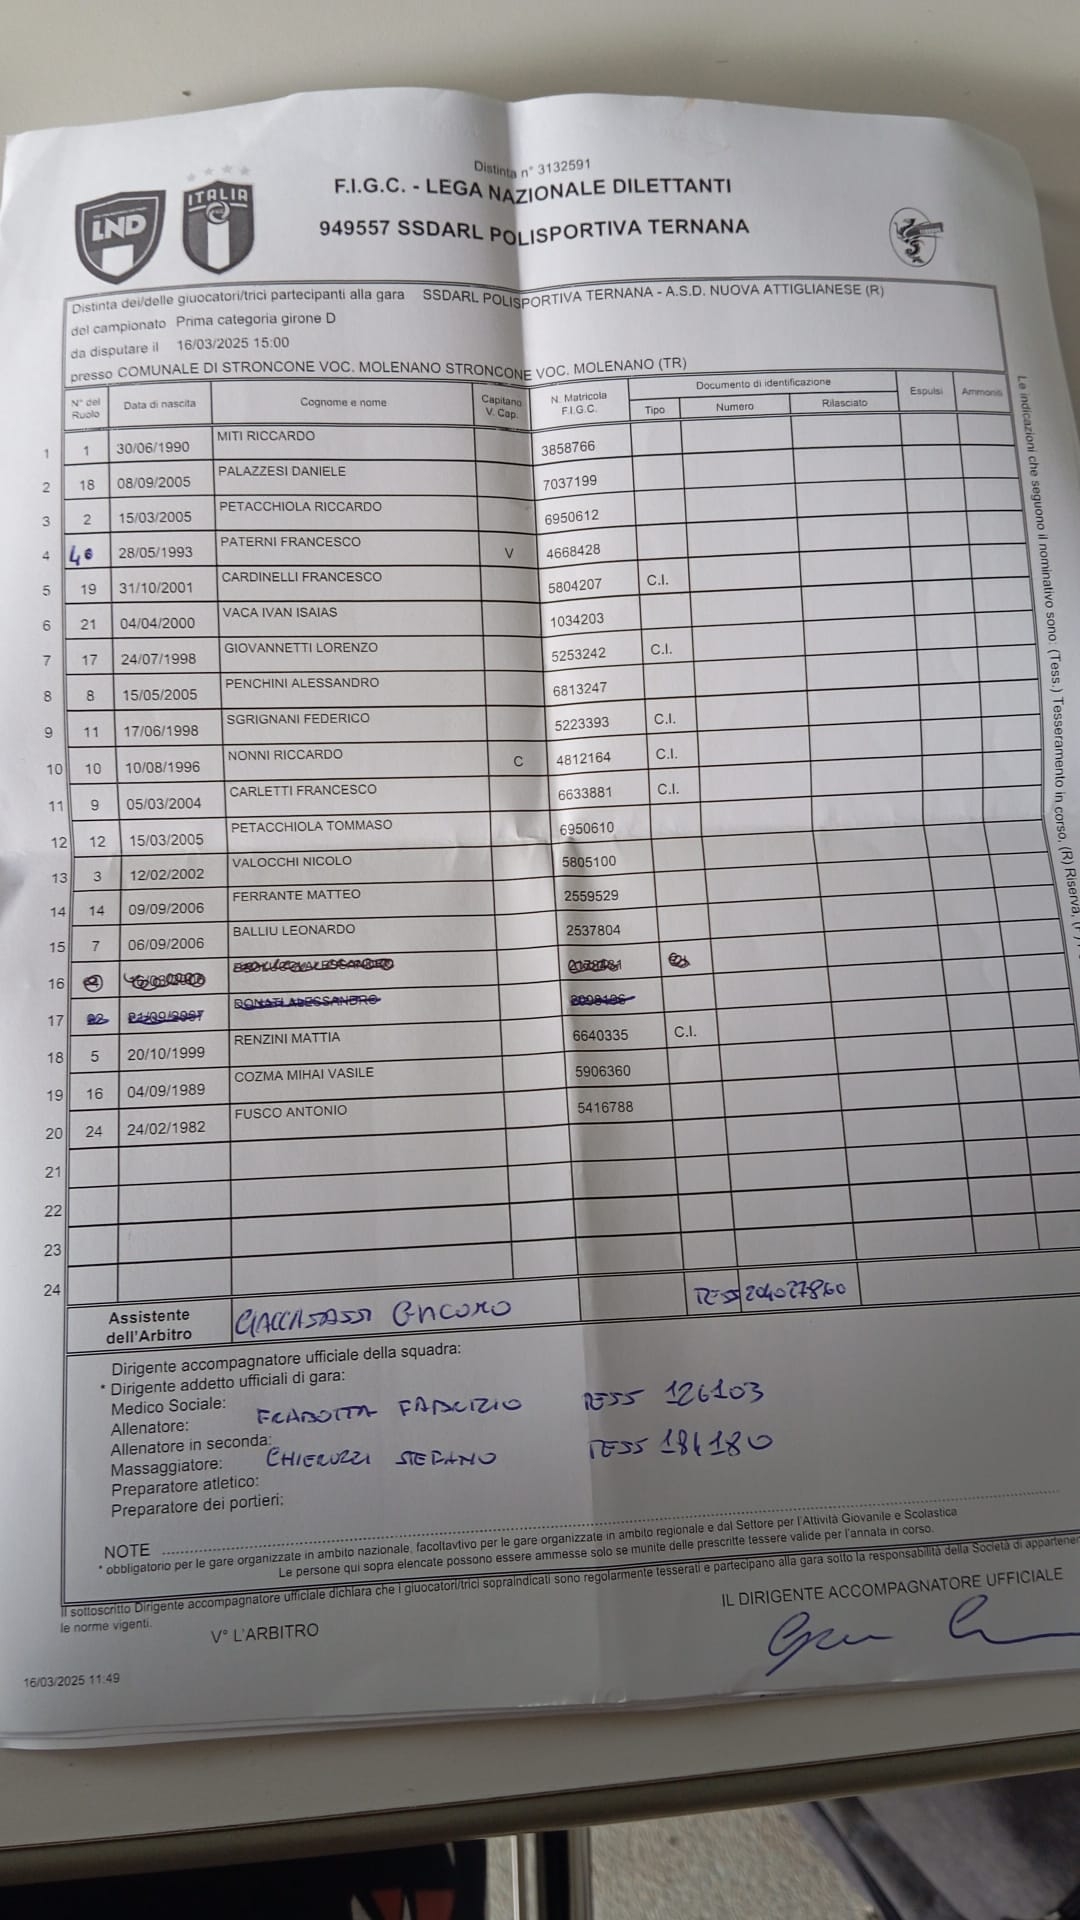 Distinta n° 3132591
F.I.G.C. - LEGA NAZIONALE DILETTANTI
949557 SSDARL POLISPORTIVA TERNANA
LND
ITALIA
Distinta dei/delle giuocatori/trici partecipanti alla gara SSDARL POLISPORTIVA TERNANA - A.S.D. NUOVA ATTIGLIANESE (R)
del campionato Prima categoria girone D
da disputare il 16/03/2025 15:00
presso COMUNALE DI STRONCONE VOC. MOLENANO STRONCONE VOC. MOLENANO (TR)
N° del Ruolo Data di nascita Cognome e nome Capitano V. Cap. N. Matricola F.I.G.C. Documento di identificazione Espulsi Ammoniti
Tipo Numero Rilasciato
1 1 30/06/1990 MITI RICCARDO 3858766
2 18 08/09/2005 PALAZZESI DANIELE 7037199
3 2 15/03/2005 PETACCHIOLA RICCARDO 6950612
4 28/05/1993 PATERNI FRANCESCO V 4668428
5 19 31/10/2001 CARDINELLI FRANCESCO 5804207 C.I.
6 21 04/04/2000 VACA IVAN ISAIAS 1034203
7 17 24/07/1998 GIOVANNETTI LORENZO 5253242 C.I.
8 8 15/05/2005 PENCHINI ALESSANDRO 6813247
9 11 17/06/1998 SGRIGNANI FEDERICO 5223393 C.I.
10 10 10/08/1996 NONNI RICCARDO C 4812164 C.I.
11 9 05/03/2004 CARLETTI FRANCESCO 6633881 C.I.
12 12 15/03/2005 PETACCHIOLA TOMMASO 6950610
13 3 12/02/2002 VALOCCHI NICOLO 5805100
14 14 09/09/2006 FERRANTE MATTEO 2559529
15 7 06/09/2006 BALLIU LEONARDO 2537804
16
17 DONATI ALESSANDRO
18 5 20/10/1999 RENZINI MATTIA 6640335 C.I.
19 16 04/09/1989 COZMA MIHAI VASILE 5906360
20 24 24/02/1982 FUSCO ANTONIO 5416788
21
22
23
24
Assistente dell'Arbitro TESS 204027860
Dirigente accompagnatore ufficiale della squadra:
* Dirigente addetto ufficiali di gara:
Medico Sociale:
Allenatore: FRABOTTA FABRIZIO TESS 126103
Allenatore in seconda:
Massaggiatore: CHIERUZZI STEFANO TESS 184180
Preparatore atletico:
Preparatore dei portieri:
NOTE
* obbligatorio per le gare organizzate in ambito nazionale, facoltavtivo per le gare organizzate in ambito regionale e dal Settore per l'Attività Giovanile e Scolastica
Le persone qui sopra elencate possono essere ammesse solo se munite delle prescritte tessere valide per l'annata in corso.
Il sottoscritto Dirigente accompagnatore ufficiale dichiara che i giuocatori/trici sopraindicati sono regolarmente tesserati e partecipano alla gara sotto la responsabilità della Società di appartener
le norme vigenti.
V° L'ARBITRO
IL DIRIGENTE ACCOMPAGNATORE UFFICIALE
16/03/2025 11:49
Le indicazioni che seguono il nominativo sono: (Tess.) Tesseramento in corso, (R) Riserva,